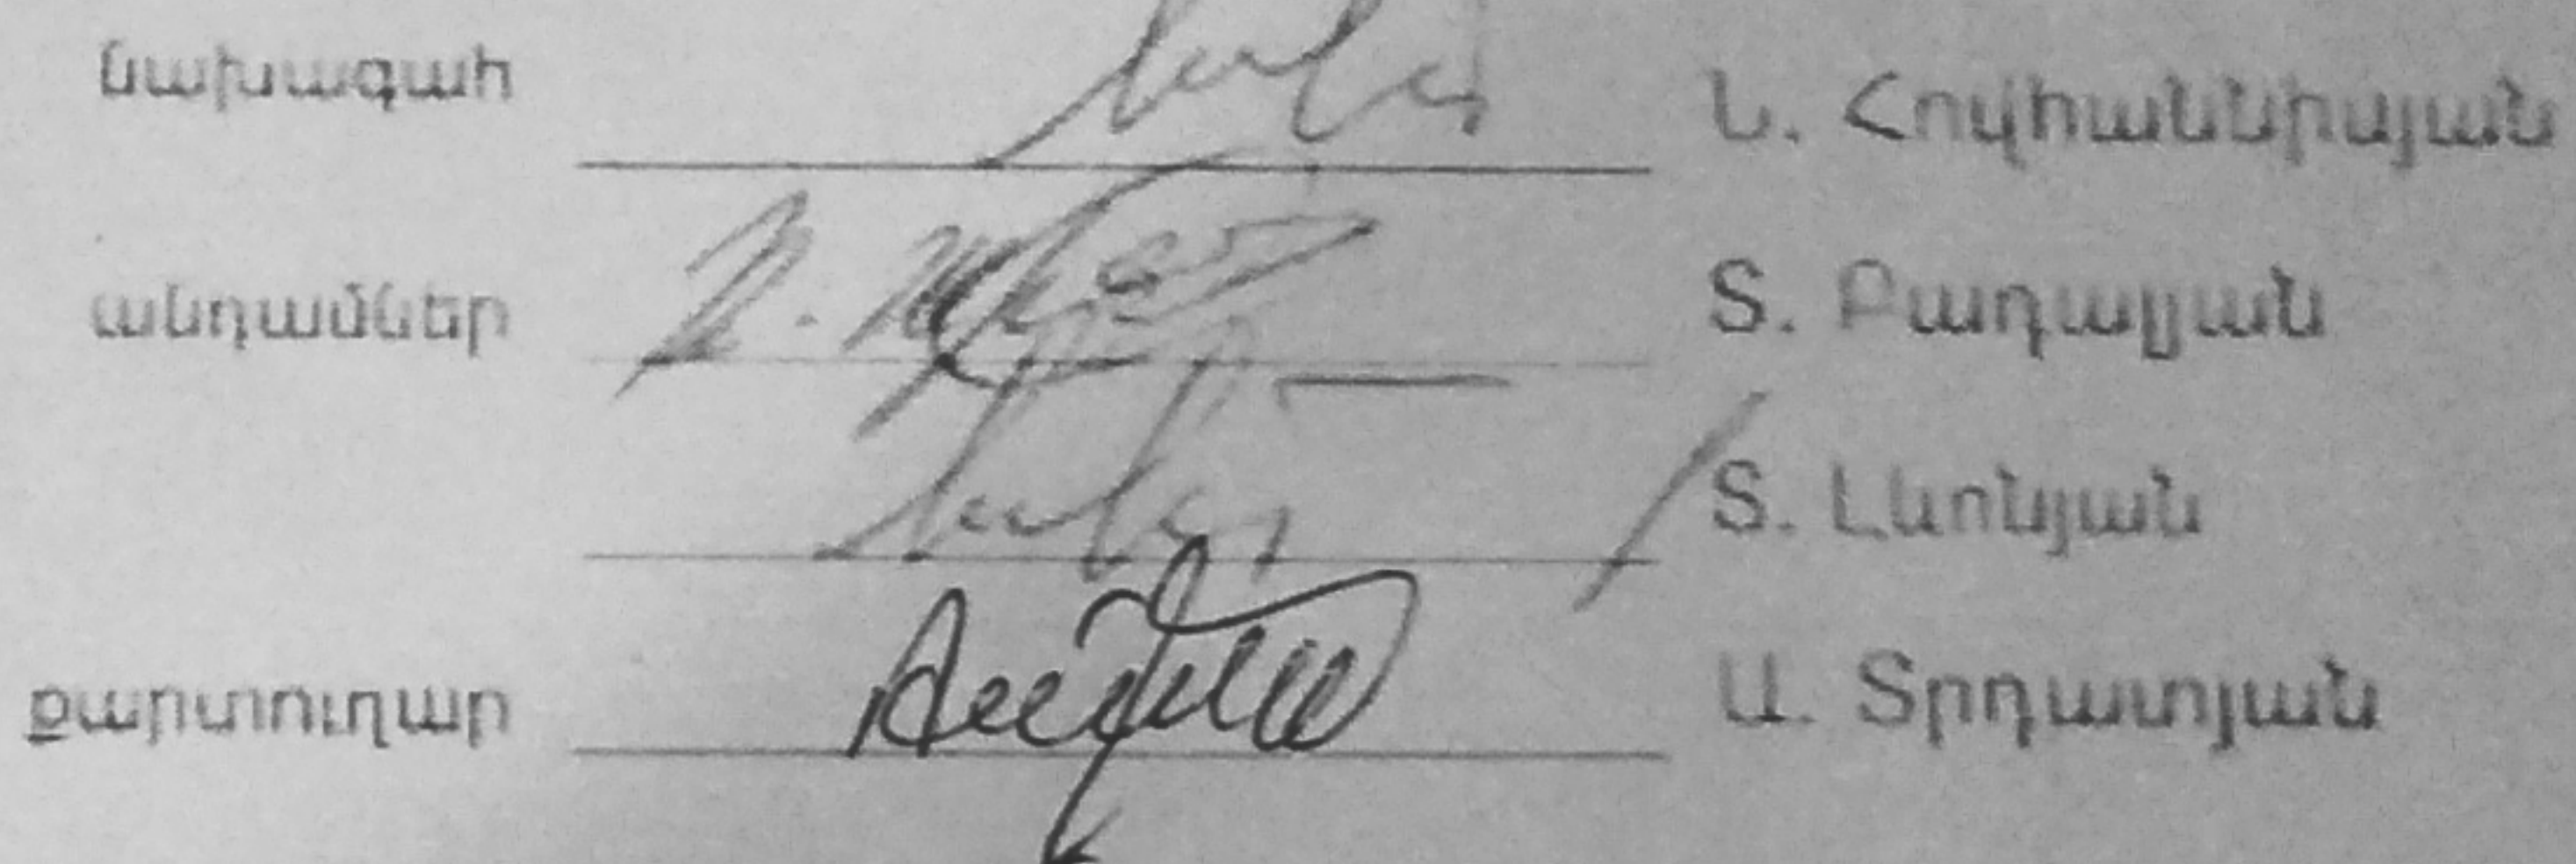 նախագահ Ն. Հովհաննիսյան
անդամներ Տ. Բադալյան
Տ. Լևոնյան
քարտուղար Ա. Տրդատյան